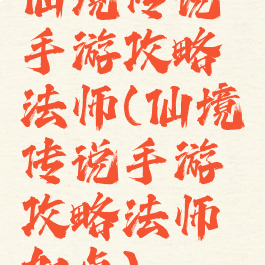 仙境传说
手游攻略
法师(仙境
传说手游
攻略法师
加点)